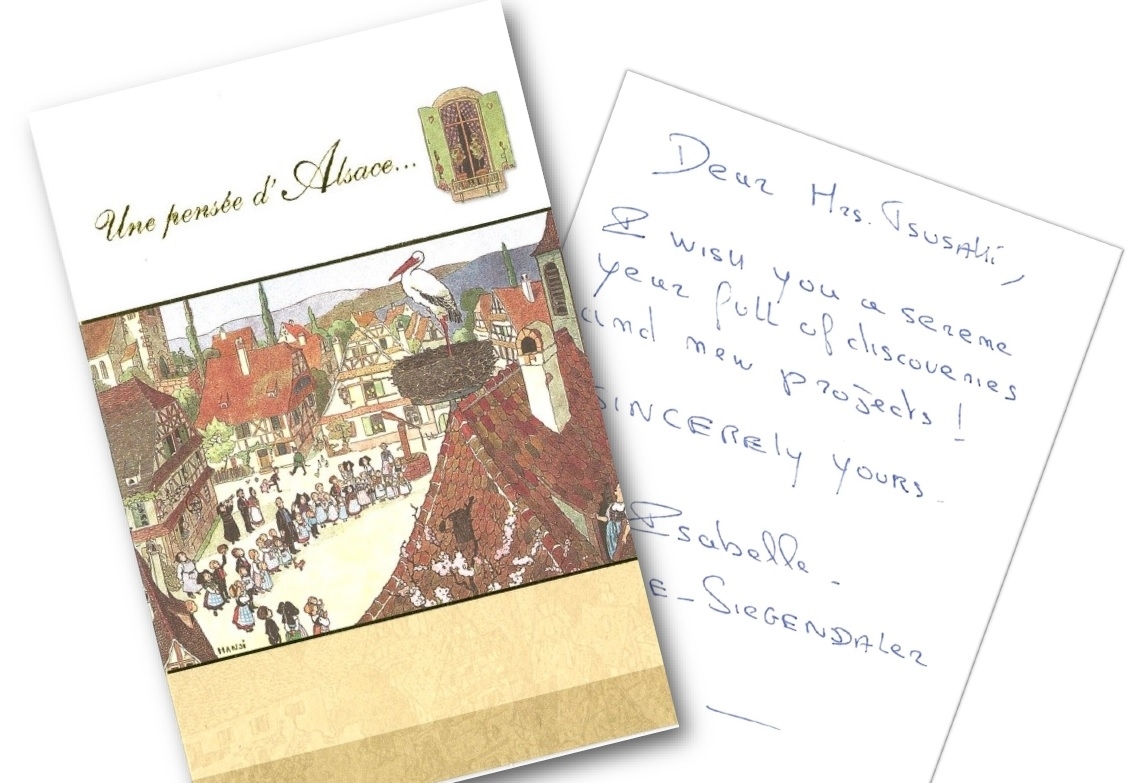 Une pensée d'Alsace...
HANSI
Dear Mrs. Tsusaki,
I wish you a serene
year full of discoveries
and new projects!
SINCERELY YOURS.
Isabelle -
E - SIEGENDALER